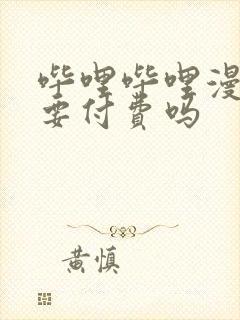 哔哩哔哩漫
要付费吗
黄慎